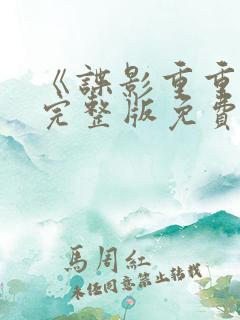 《諜影重重
完整版免費
馬周紅
未經同意禁止轉載